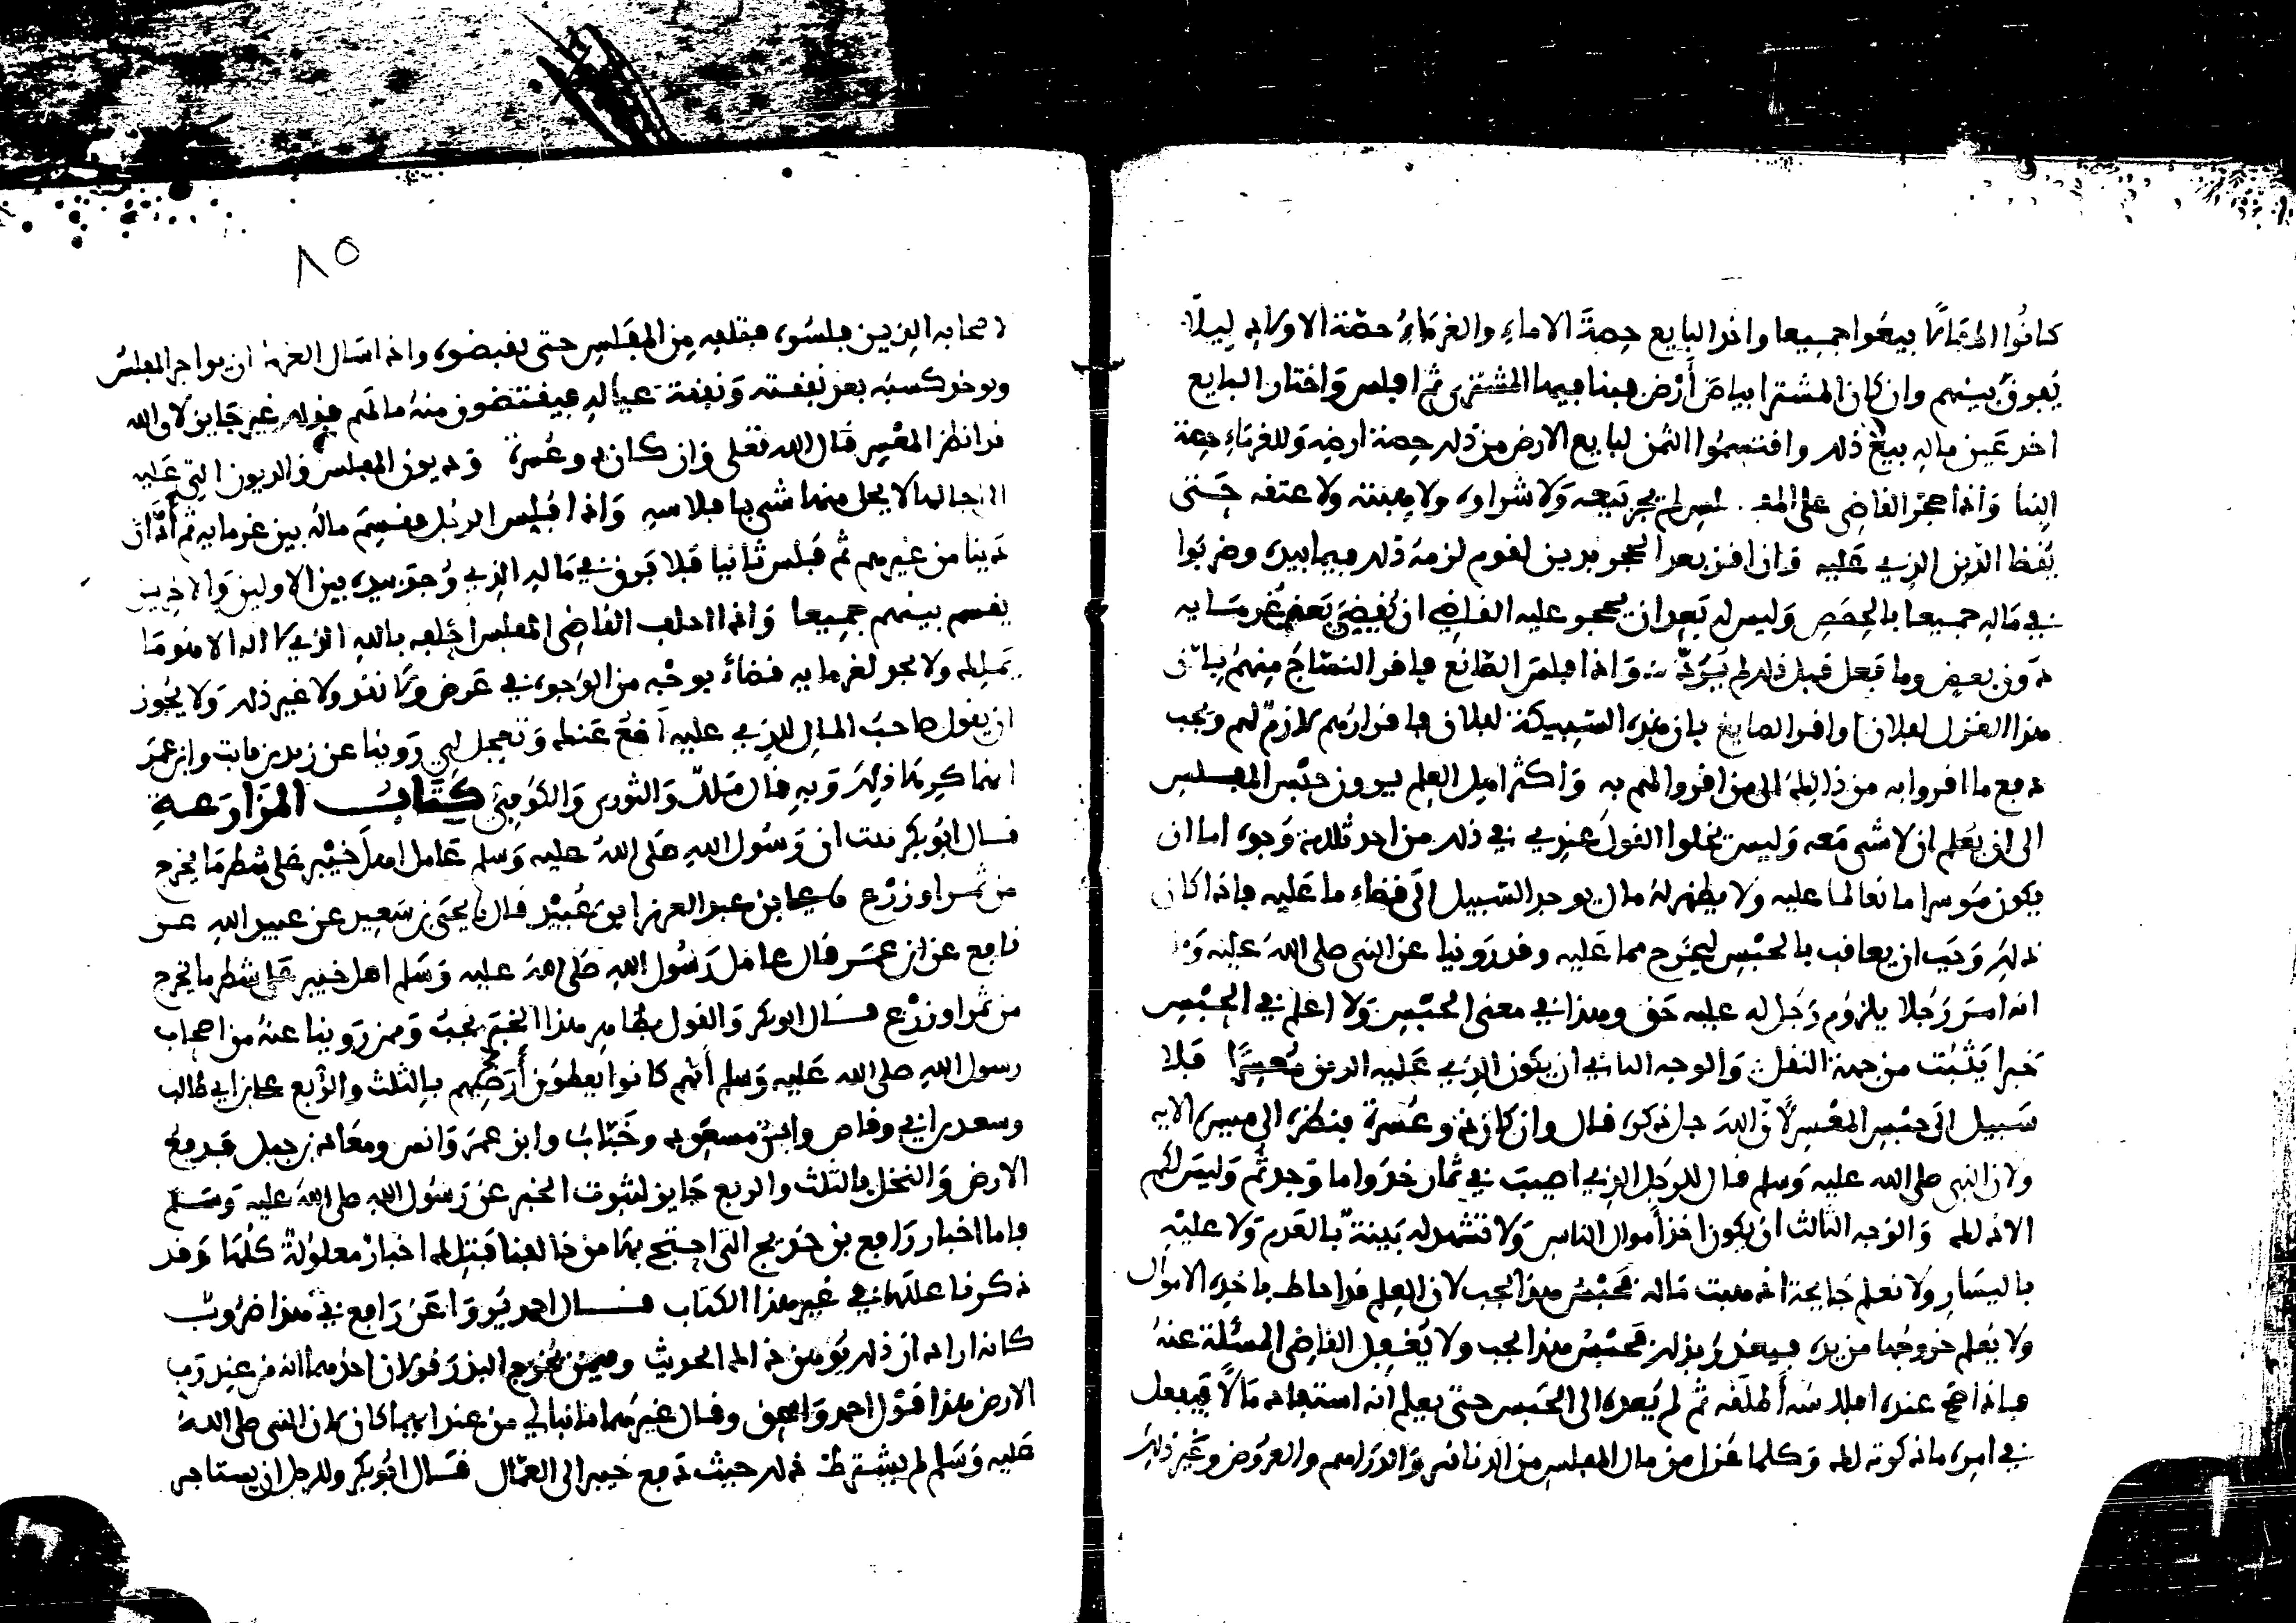 كانوا اطفالا بيعوا جميعا واخذ البايع حصة الاماء والغرماء حصة الاولاد ليلا
يفرق بينهم وان كان المشترا بياض أرض فبنا فيها المشتري ثم افلس واختار البايع
اخذ عين ماله بيع ذلك واقتسموا الثمن لبايع الارض من ذلك حصة ارضه وللغرماء حصة
البنا واذا حجر القاضي على المفلس لم يجز بيعه ولا شراوه ولا هبته ولا عتقه حتى
يقضا الدين الذي عليه وان اقر بعد الحجر بدين لقوم لزمه ذلك فيما بيده وضربوا
في ماله جميعا بالحصص وليس له بعد ان يحجر عليه القاضي ان يقضي بعض غرمايه
دون بعض وما فعل قبل ذلك لم يرد واذا افلس الصانع فاقر النساج منهم بان
هذا الغزل لفلان واقر الصايغ بان هذه السبيكة لفلان فاقرارهم لازم لهم ويجب
دفع ما اقروا به من ذلك الى من اقروا لهم به واكثر اهل العلم يرون حبس المفلس
الى ان يعلم ان لا شى معه وليس يخلوا القول عندي في ذلك من احد ثلاثة وجوه اما ان
يكون موسرا مانعا لما عليه ولا يظهر له مال يوجد السبيل الى قضاء ما عليه فاذا كان
ذلك وجب ان يعاقب بالحبس ليخرج مما عليه وقد روينا عن النبي صلى الله عليه و
انه امر رجلا يلزم رجل له عليه حق وهذا في معنى الحبس ولا اعلم في الحبس
خبرا يثبت من جهة النقل والوجه الثاني ان يكون الذي عليه الدين معسرا فلا
سبيل الى حبس المعسر لان الله جل ذكره قال وان كان ذو عسرة فنظرة الى ميسرة الاية
ولان النبي صلى الله عليه وسلم قال للرجل الذي اصيب في ثمار خذوا ما وجدتم وليس لكم
الا ذلك والوجه الثالث ان يكون اخذ أموال الناس ولا تشهد له بينة بالعدم ولا عليه
باليسار ولا نعلم جايحة اذهبت ماله فحبس هذا يجب لان العلم قد احاط باخذه الاموال
ولا يعلم خروجها من يده فحبس هذا يجب ولا يغفل القاضي المسئلة عنه
فاذا صح عنده افلاسه أطلقه ثم لم يعده الى الحبس حتى يعلم أنه استفاد مالا فيفعل
في امره ما ذكرته لك وكلما عزل من مال المفلس من الدنانير والدراهم والعروض وغير ذلك
٨٥
لاصحابه الذين فلسوه فتلفه من المفلس حتى يقبضوه واذا سال الغرما ان يواجر المفلس
ويوخذ كسبه بعد نفقته ونفقة عياله فيقتضون منه مالهم فذلك غير جايز لان الله
قد انظر المعسر قال الله تعلى وان كان ذو عسرة وديون المفلس والديون التي عليه
الى اجالها لا يحل منها شي بافلاسه واذا فلس الرجل فقسم ماله بين غرمايه ثم أدان
دينا من غيرهم ثم فلس ثانيا فلا فرق في ماله الذي وجد بيده بين الاولين والاخرين
يقسم بينهم جميعا واذا احلف القاضي المفلس احلفه بالله الذي لا اله الا هو ما
يملك ولا يجد لغرمايه قضاء بوجه من الوجوه في عرض ولا نقد ولا غير ذلك ولا يجوز
ان يقول صاحب المال للذي عليه أضع عنك وتعجل لي روينا عن زيد بن ثابت وابن عمر
انهما كرها ذلك وبه قال ملك والثوري والكوفي كتاب المزارعة
قال ابو بكر ثبت ان رسول الله صلى الله عليه وسلم عامل اهل خيبر على شطر ما يخرج
من ثمر او زرع علي بن عبد العزيز ابن عبيد قال يحيى بن سعيد عن عبيد الله عن
نافع عن ابن عمر قال عامل رسول الله صلى الله عليه وسلم اهل خيبر على شطر ما يخرج
من ثمر او زرع قال ابو بكر والقول بظاهر هذا الخبر يجب وممن روينا عنه من اصحاب
رسول الله صلى الله عليه وسلم أنهم كانوا يعطون أرضهم بالثلث والربع علي بن ابي طالب
وسعد بن ابي وقاص وابن مسعود وخباب وابن عمر وانس ومعاذ بن جبل فدفع
الارض والنخل بالثلث والربع جايز لثبوت الخبر عن رسول الله صلى الله عليه وسلم
فاما اخبار رافع بن خديج التي احتج بها من خالفنا فتلك اخبار معلولة كلها وقد
ذكرنا عللها في غير هذا الكتاب قال احمد يروا عن رافع في هذا ضروب
كانه اراد ان ذلك يوهن ذلك الحديث وفيمن يخرج البذر قولان احدهما انه من عند رب
الارض هذا قول احمد واسحق وقال غيرهما ما نبالي من عند ايهما كان لان النبي صلى الله
عليه وسلم لم يشترط ذلك حيث دفع خيبر الى العمال قال ابو بكر وللرجل ان يستاجر